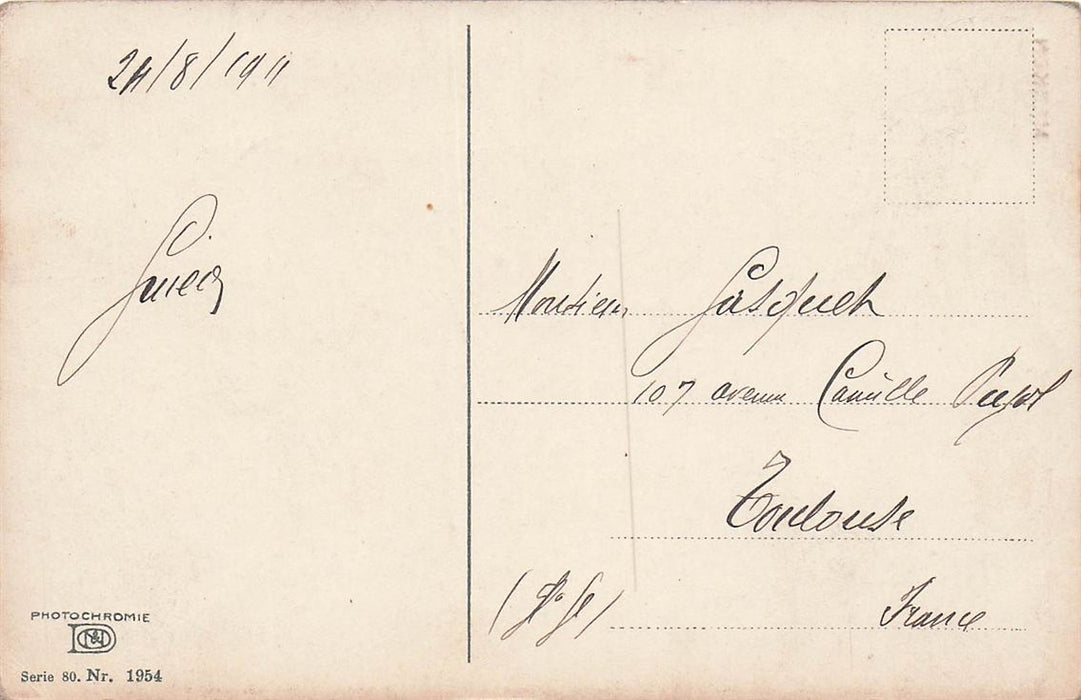 24/8/1911
Monsieur Gasquet
107 avenue Camille Pujol
Toulouse
(Hte Gne)
France
PHOTOCHROMIE
Serie 80. Nr. 1954